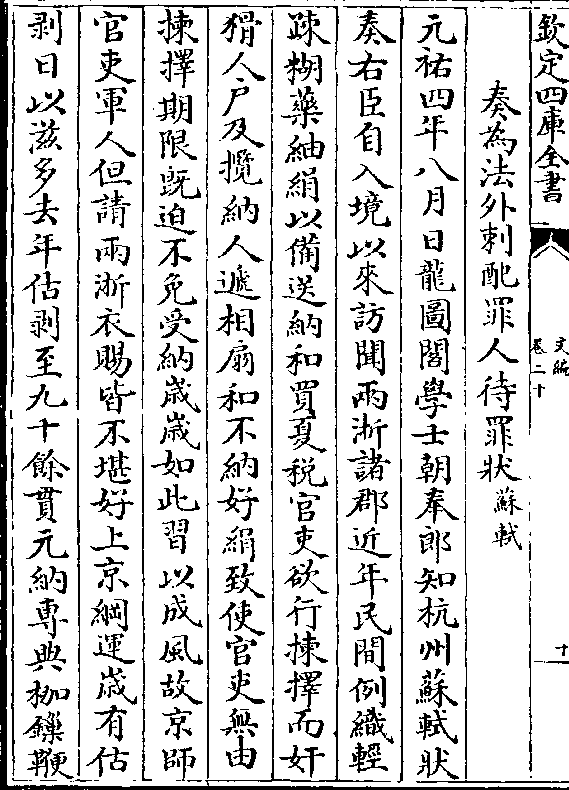 欽定四庫全書
文編
卷二十
十一
奏為法外刺配罪人待罪狀 蘇軾
元祐四年八月日龍圖閣學士朝奉郎知杭州蘇軾狀
奏右臣自入境以來訪聞兩浙諸郡近年民間例織輕
疎糊藥紬絹以備送納和買夏稅官吏欲行揀擇而奸
猾人户及攬納人遞相扇和不納好絹致使官吏無由
揀擇期限既迫不免受納歳歳如此習以成風故京師
官吏軍人但請兩浙衣賜皆不堪好上京綱運歳有估
剥日以滋多去年估剥至九十餘貫元納專典枷鏁鞭